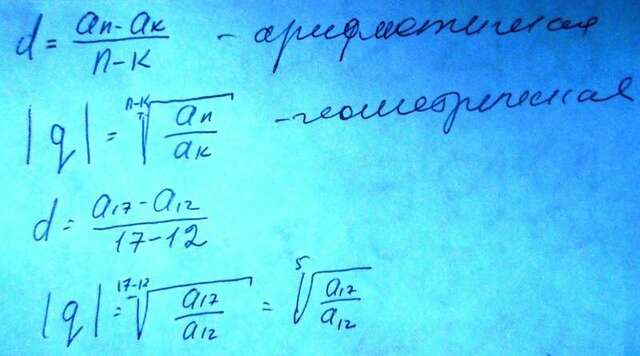 d = (aₙ - aₖ)/(n - k) - арифметическая
|q| = ⁿ⁻ᵏ√(aₙ/aₖ) - геометрическая
d = (a₁₇ - a₁₂)/(17 - 12)
|q| = ¹⁷⁻¹²√(a₁₇/a₁₂) = ⁵√(a₁₇/a₁₂)